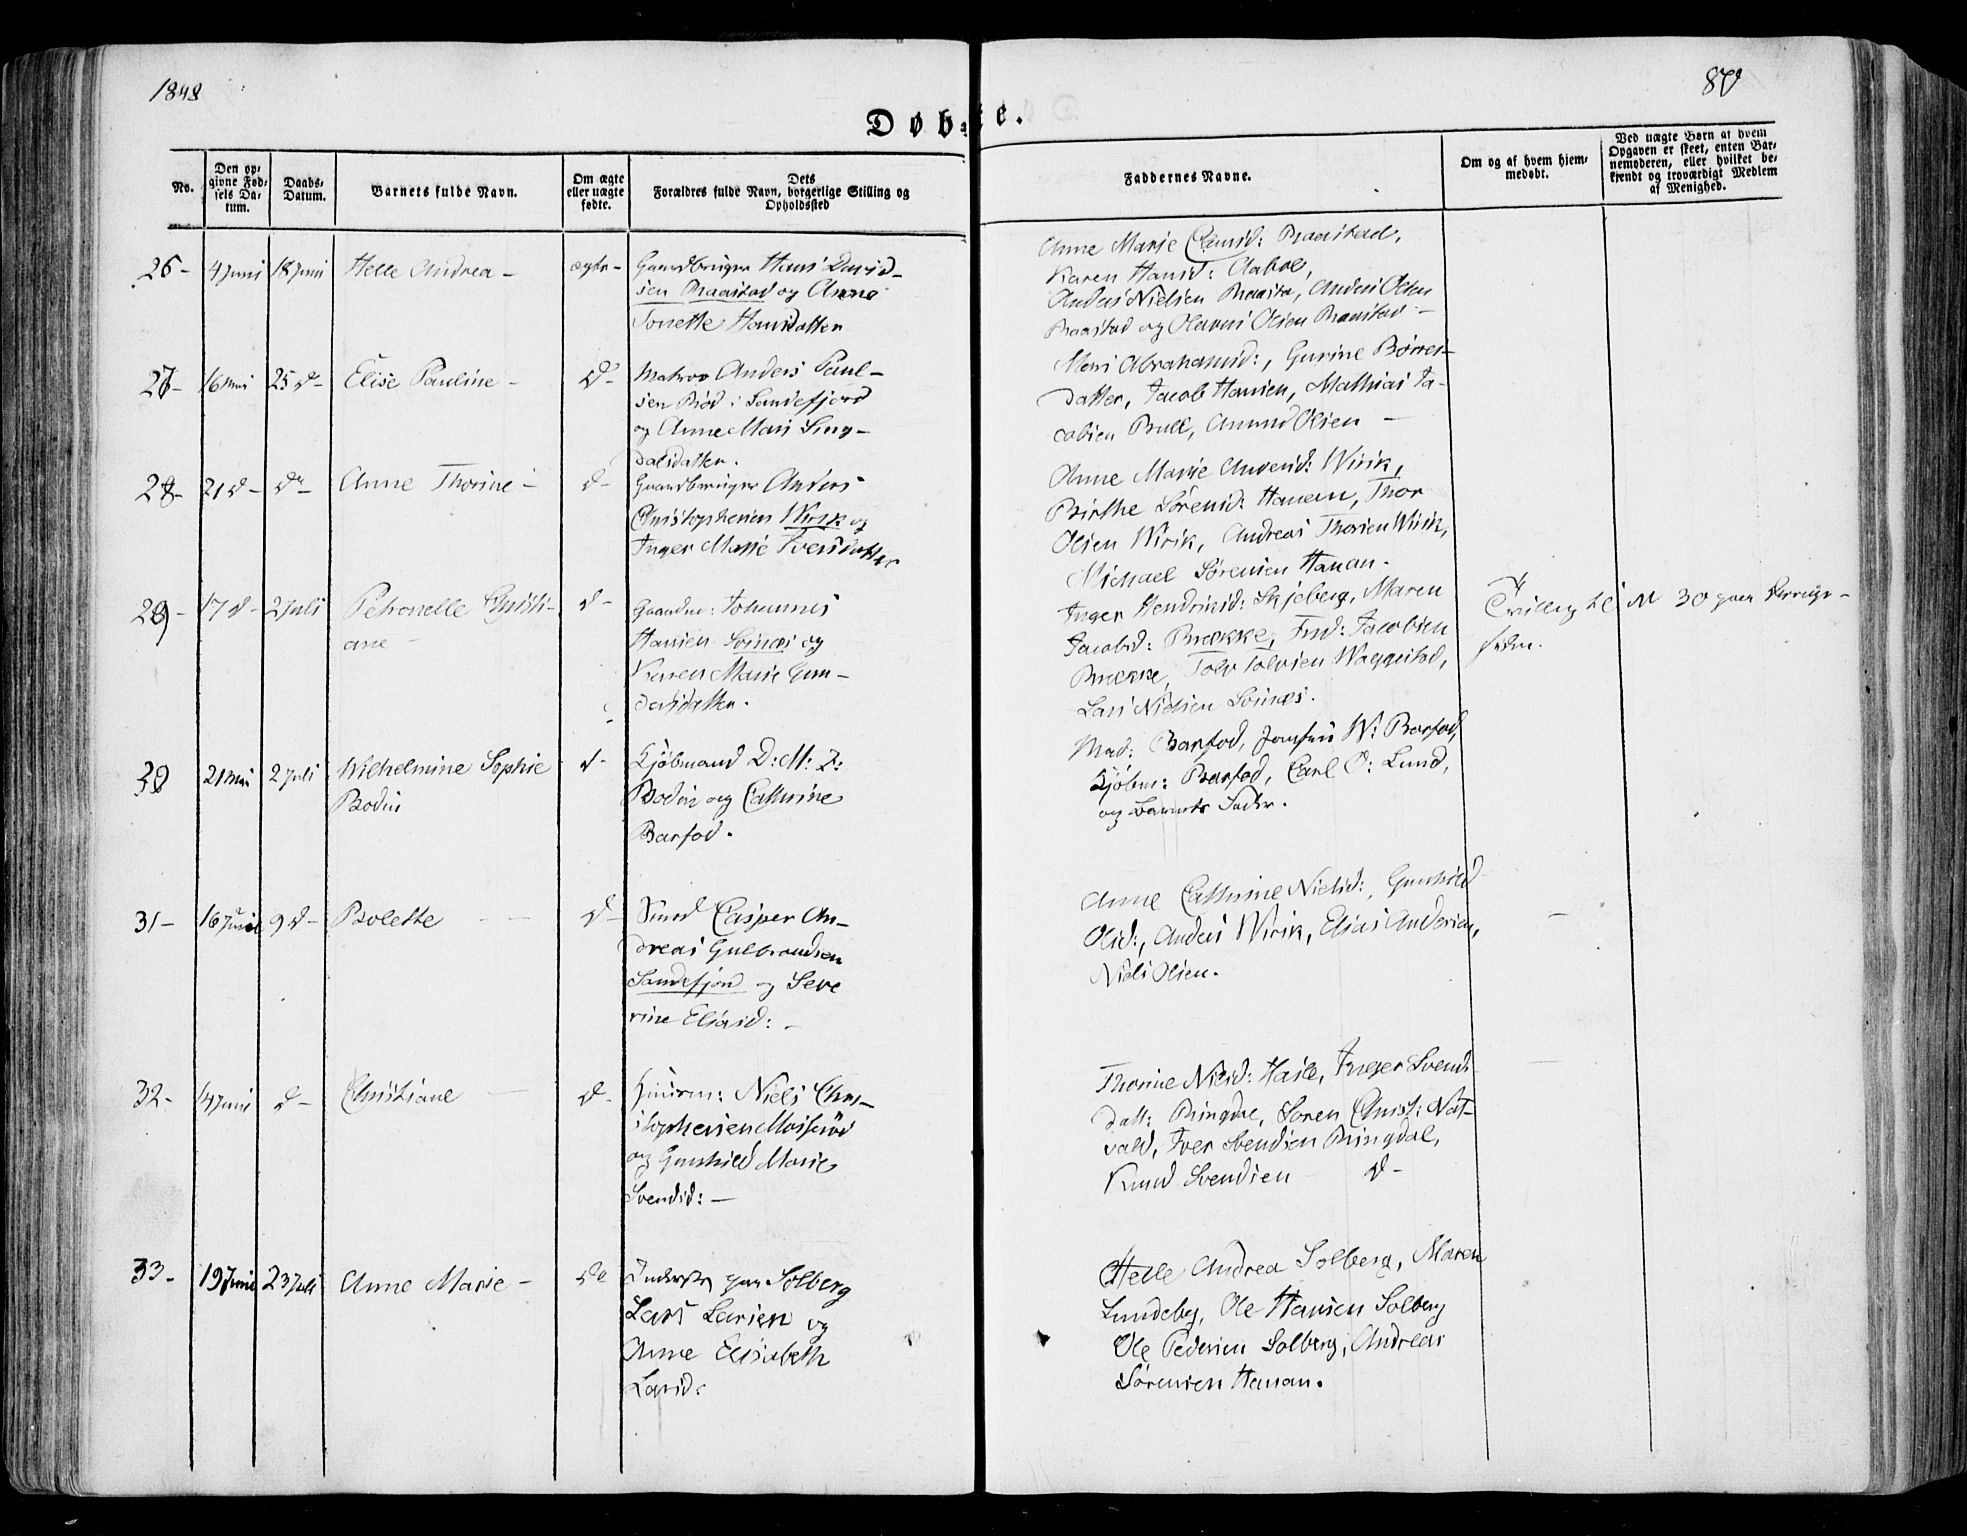 1848
87
Døbte.
No.
Den op-
givne Fød-
sels Da-
tum.
Daabs-
Datum.
Barnets fulde Navn.
Om ægte
eller uægte
fødte.
Dets
Forældres fulde Navn, borgerlige Stilling og
Opholdssted
Faddernes Navne.
Om og af hvem hjem-
medøbt.
Ved uægte Børn af hvem
Opgaven er skeet, enten Bar-
nemoderen, eller hvilket be-
kjendt og troværdigt Medlem
af Menighed.
26- 4 Juni 18 Juni Helle Andrea - ægte-
Gaardbruger Hans David-
sen Raastad og Anne
Tonette Hansdatter
Anne Marie Raastad,
Karen Hansd: Aabol,
Anders Nielsen Raasta, Anders Olsen
Raastad og Olavus Olsen Raastad -
27- 16 Mai 25 d- Elise Pauline - d-
Matros Anders Paul-
sen Rød i Sandefjord
og Anne Mari
dalsdatter.
Mari Abrahamsd:, Gurine Børres-
datter, Jacob Hansen, Mathias Ja-
cobsen Bull, Amund Olsen -
28- 21 d- do- Anne Thorine - d-
Gaardbruger Anders
Christophersen Wirik og
Inger Marie Iversdatter
Anne Marie Andersd: Wirik,
Birthe Sørensd: Hanan, Thor
Olsen Wirik, Andreas Thorsen Wirik,
Michael Sørensen Hanan.
29- 17 d- 2 Juli Petronelle Christi-
ane - d-
Gaardm: Johannes
Hansen Soinæs og
Karen Marie Gun-
dersdatter.
Inger Hendriksd: Skjeberg, Maren
Jacobsd: Brække, Fred: Jacobsen
Brække, Tolv Tolvsen Waggestad,
Lars Nielsen Soinæs.
Tvilling til N 30 paa
siden.
30 21 Mai 2 Juli Wilhelmine Sophie
Bodin d-
Kjøbmand D: M: Z:
Bodin og Cathrine
Barfod.
Mad: Barfod, Jomfru W: Barfod,
Kjøbm: Barfod, Carl O: Lund,
og Barnets Fader.
31- 16 Juni 9 d- Bolette - d-
Smed Casper An-
dreas Gulbrandsen
Sandefjord og Seve
rine Eliasd: -
Anne Cathrine Nielsd:, Gunhild
Olsd:, Anders Wirik, Elias Andersen,
Niels Olsen.
32- 14 Juni d- Christiane - d-
Huusm: Niels Chri-
stophersen Moiserød
og Gunhild Marie
Svendsd: -
Thorine Nilsd: Hasle, Inger Svends
datt: Ringdal, Søren Christ: Nat-
vald, Iver Svendsen Ringdal,
Knud Svendsen d-
33- 19 Juni 23 Juli Anne Marie - do
Inderste paa Solberg
Lars Larsen og
Anne Elisabeth
Larsd:
Helle Andrea Solberg, Maren
Lundeby, Ole Hansen Solberg
Ole Pedersen Solberg, Andreas
Sørensen Hanan.